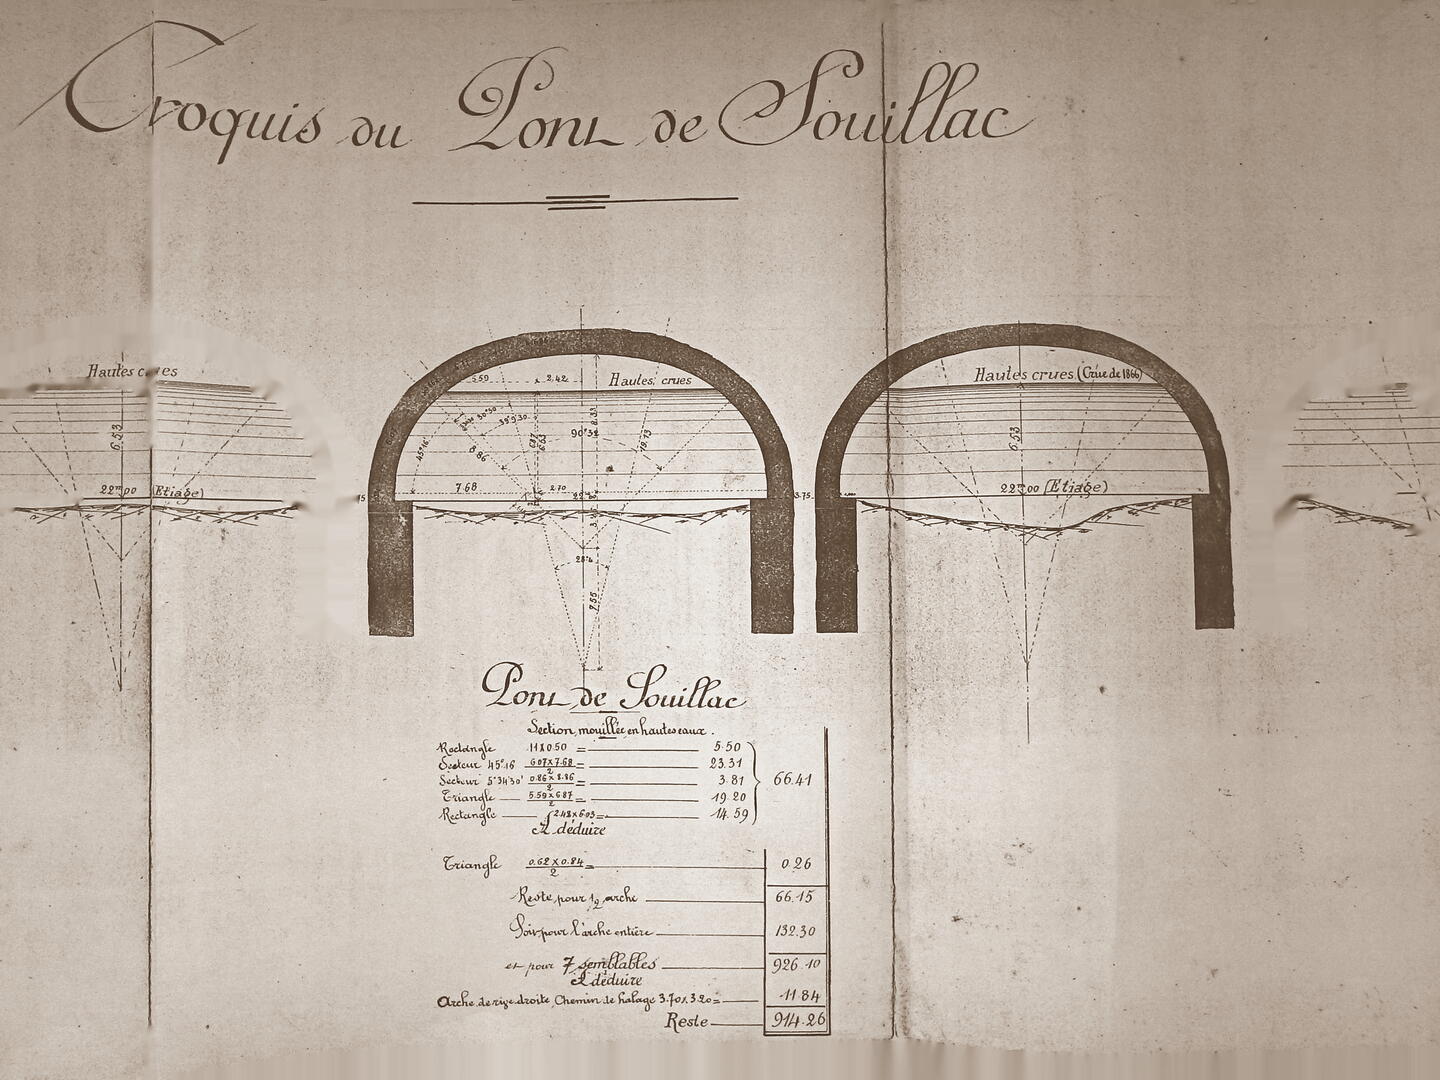 Croquis du Pont de Souillac
Hautes crues
6.53
22m00 (Etiage)
5.59
2.42
Hautes crues
39°9'30
90°32
45°16
8.86
19.13
7.68
2.70
28°4
7.55
3.75
Hautes crues (Crue de 1866)
6.53
22m00 (Etiage)
Pont de Souillac
Section mouillée en hautes eaux.
Rectangle 11x0.50 = 5.50
Secteur 45°16 6.07x7.68/2 = 23.31
Secteur 5°34'30" 0.86x8.86/2 = 3.81
Triangle 5.59x6.87/2 = 19.20
Rectangle 2.48x6.03 = 14.59
66.41
A déduire
Triangle 0.62x0.84/2 = 0.26
Reste pour 1/2 arche 66.15
Soit pour l'arche entière 132.30
et pour 7 semblables 926.10
A déduire
Arche de rive droite, Chemin de halage 3.70x3.20= 11.84
Reste 914.26